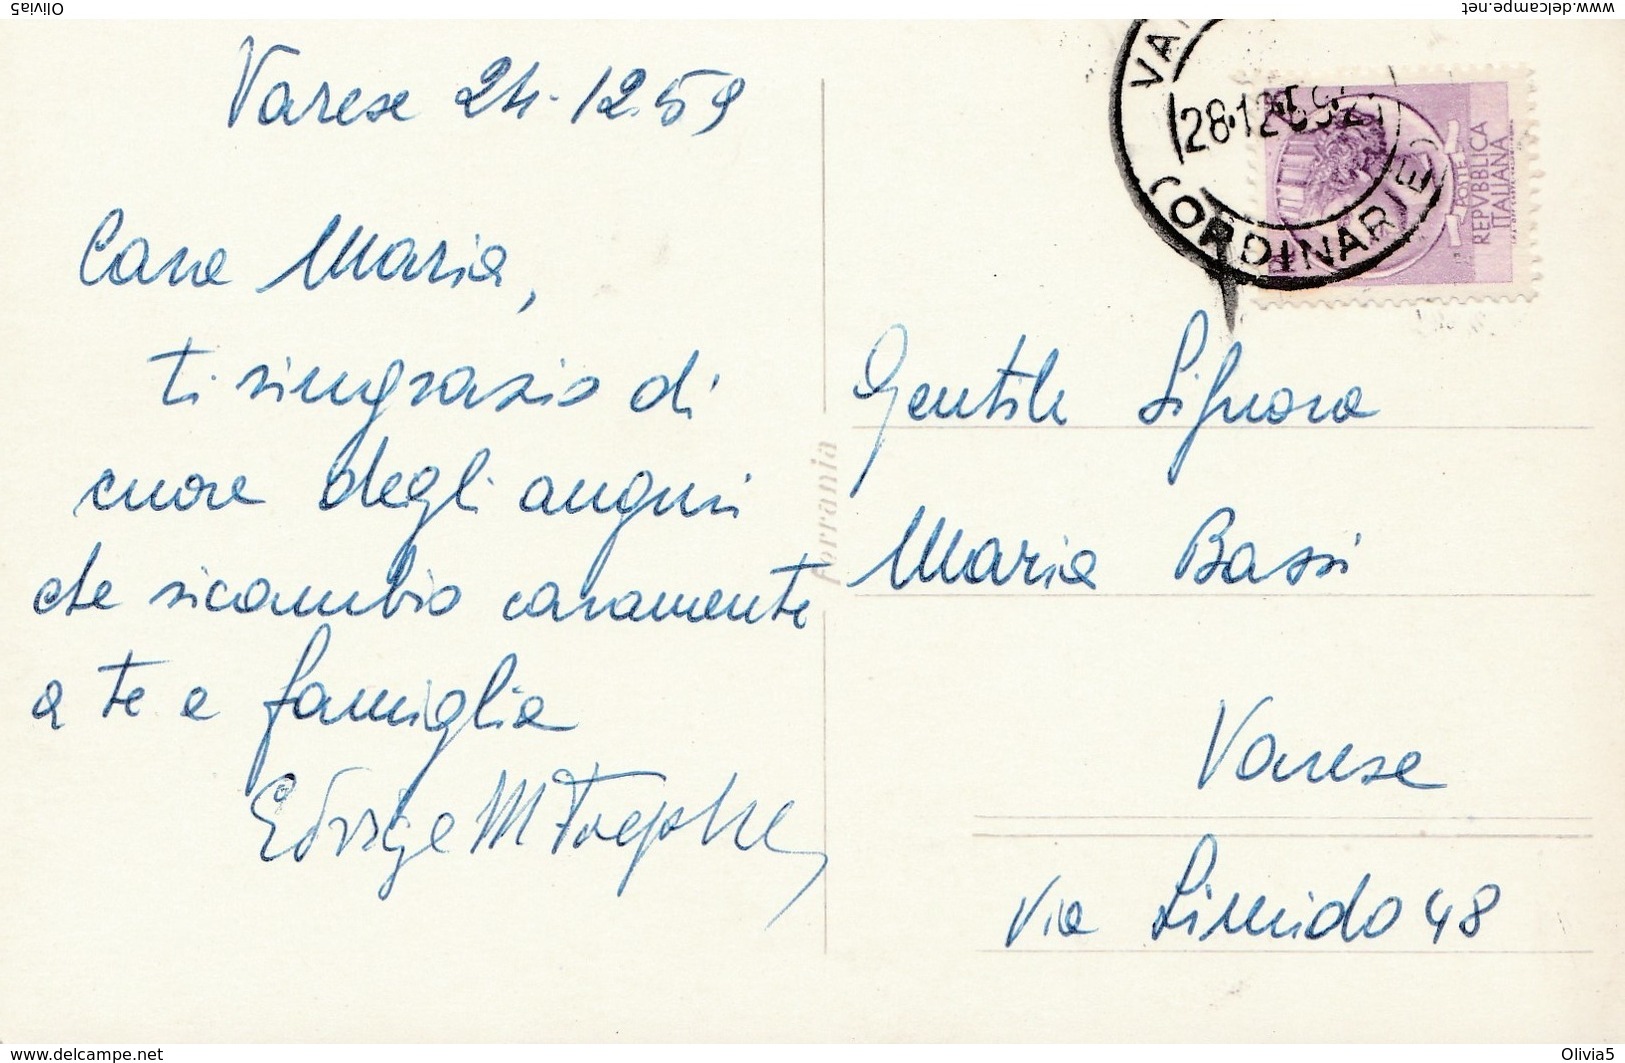 Olivia5
www.delcampe.net
Varese 24.12.59
Cara Maria,
ti ringrazio di
cuore degli auguri
che ricambio caramente
a te e famiglia
Edvige M
ferrania
VA
28.12.59.21
(ORDINARIE)
POSTE
REPVBBLICA
ITALIANA
Gentile Signora
Maria Bassi
Varese
Via Limido 48
www.delcampe.net
Olivia5